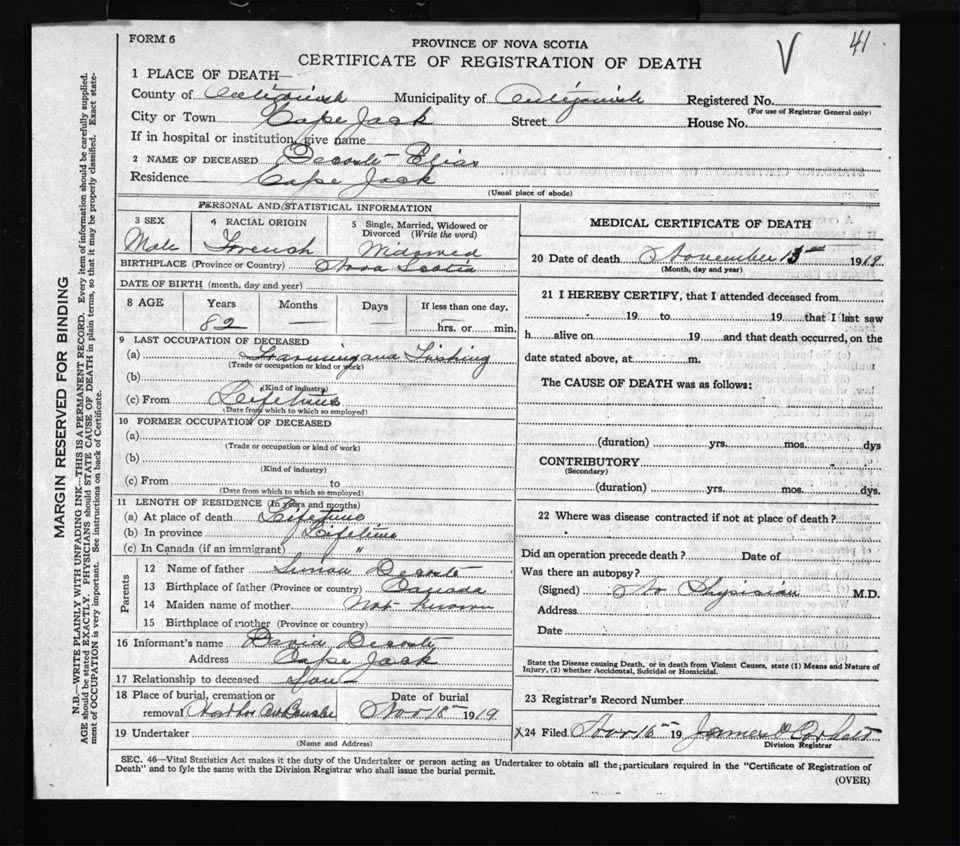 FORM 6
PROVINCE OF NOVA SCOTIA
V 41
CERTIFICATE OF REGISTRATION OF DEATH
1 PLACE OF DEATH—
County of Antigonish Municipality of Antigonish Registered No.
(For use of Registrar General only)
City or Town Cape Jack Street House No.
If in hospital or institution, give name
2 NAME OF DECEASED Decoste Elias
Residence Cape Jack
(Usual place of abode)
PERSONAL AND STATISTICAL INFORMATION
3 SEX Male
4 RACIAL ORIGIN French
5 Single, Married, Widowed or Divorced (Write the word) Widowed
BIRTHPLACE (Province or Country) Nova Scotia
DATE OF BIRTH (month, day and year)
8 AGE Years Months Days If less than one day,
82 — — hrs. or min.
9 LAST OCCUPATION OF DECEASED
(a) Farming and Fishing
(Trade or occupation or kind of work)
(b)
(Kind of industry)
(c) From Lifetime
(Date from which to which so employed)
10 FORMER OCCUPATION OF DECEASED
(a)
(Trade or occupation or kind of work)
(b)
(Kind of industry)
(c) From to
(Date from which to which so employed)
11 LENGTH OF RESIDENCE (In years and months)
(a) At place of death Lifetime
(b) In province Lifetime
(c) In Canada (if an immigrant) "
Parents
12 Name of father Simon Decoste
13 Birthplace of father (Province or country) Canada
14 Maiden name of mother Not known
15 Birthplace of mother (Province or country)
16 Informant's name David Decoste
Address Cape Jack
17 Relationship to deceased Son
18 Place of burial, cremation or removal Harbor Au Bouche
Date of burial Nov 16 1919
19 Undertaker
(Name and Address)
MEDICAL CERTIFICATE OF DEATH
20 Date of death November 13 1919
(Month, day and year)
21 I HEREBY CERTIFY, that I attended deceased from
19 to 19 that I last saw
h alive on 19 and that death occurred, on the
date stated above, at m.
The CAUSE OF DEATH was as follows:
(duration) yrs. mos. dys
CONTRIBUTORY
(Secondary)
(duration) yrs. mos. dys.
22 Where was disease contracted if not at place of death?
Did an operation precede death? Date of
Was there an autopsy?
(Signed) No Physician M.D.
Address
Date
State the Disease causing Death, or in death from Violent Causes, state (1) Means and Nature of
Injury, (2) whether Accidental, Suicidal or Homicidal.
23 Registrar's Record Number
X 24 Filed Nov 16 19 James Corbett
Division Registrar
SEC. 46—Vital Statistics Act makes it the duty of the Undertaker or person acting as Undertaker to obtain all the particulars required in the "Certificate of Registration of
Death" and to fyle the same with the Division Registrar who shall issue the burial permit.
(OVER)
MARGIN RESERVED FOR BINDING
N.B.—WRITE PLAINLY WITH UNFADING INK—THIS IS A PERMANENT RECORD. Every item of information should be carefully supplied.
AGE should be stated EXACTLY. PHYSICIANS should STATE CAUSE OF DEATH in plain terms, so that it may be properly classified. Exact state-
ment of OCCUPATION is very important. See instructions on back of Certificate.